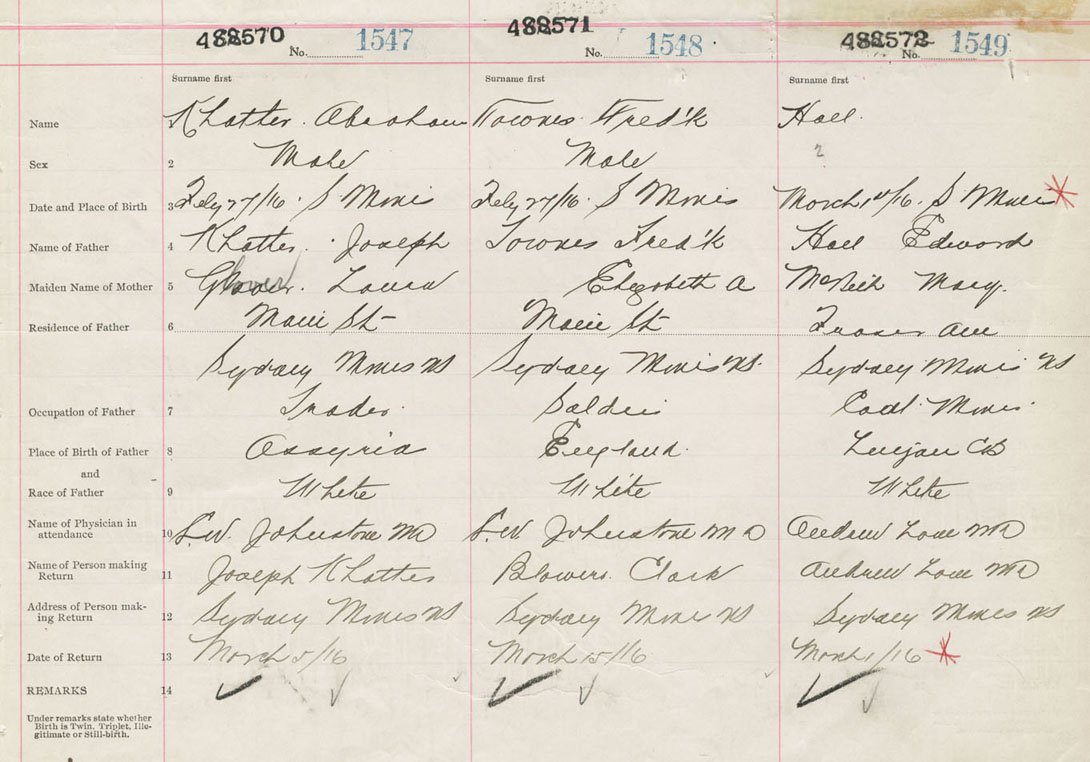 488570 No. 1547 488571 No. 1548 488572 No. 1549
Surname first Surname first Surname first
Name 1 Khatter. Abraham Townes Fred'k Hall.
Sex 2 Male Male ?
Date and Place of Birth 3 Feby 27/16. S Mines Feby 27/16. S Mines March 1st/16. S Mines
Name of Father 4 Khatter. Joseph Townes Fred'k Hall Edward
Maiden Name of Mother 5 Laura Elizabeth A Mary.
Residence of Father 6 Main St Main St Fraser Ave
Sydney Mines NS Sydney Mines NS. Sydney Mines NS
Occupation of Father 7 Trader. Soldier Coal Miner
Place of Birth of Father 8 Assyria England. Lingan CB
and
Race of Father 9 White White White
Name of Physician in
attendance 10 L.W. Johnstone MD L.W. Johnstone MD Andrew Love MD
Name of Person making
Return 11 Joseph Khatter Blowers Clark Andrew Love MD
Address of Person mak-
ing Return 12 Sydney Mines NS Sydney Mines NS Sydney Mines NS
Date of Return 13 March 5/16 March 15/16 March 1/16
REMARKS 14
Under remarks state whether
Birth is Twin, Triplet, Ille-
gitimate or Still-birth.